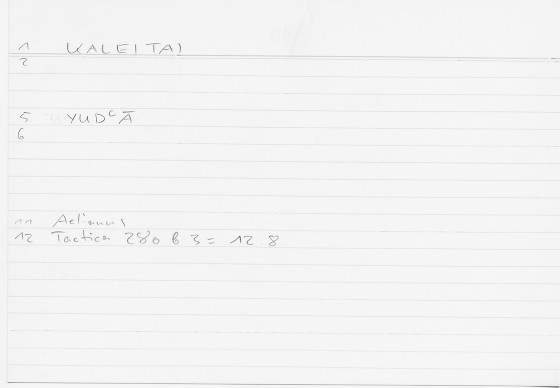 1 KALEITAI
2
5 YUDᶜĀ
6
11 Aelianus
12 Tactica 280 b 3 = 12.8